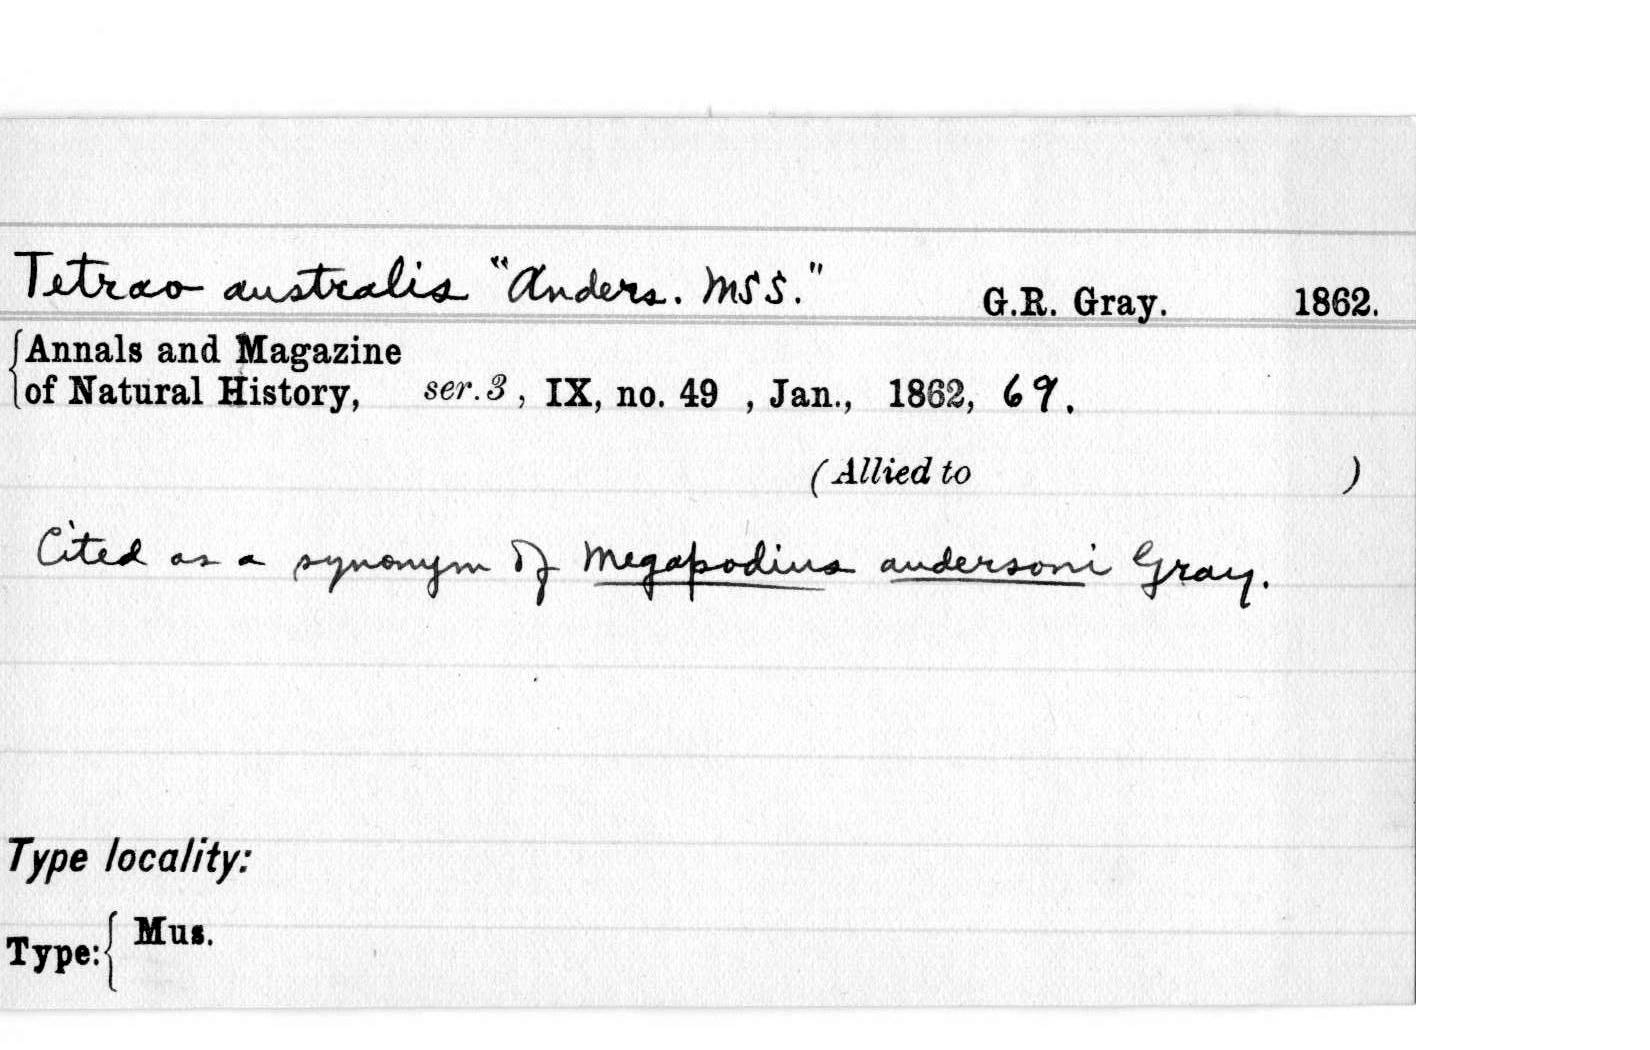 Tetrao australis "Anders. MSS." G.R. Gray. 1862.
Annals and Magazine
of Natural History, ser.3, IX, no. 49 , Jan., 1862, 69.
(Allied to )
Cited as a synonym of Megapodius andersoni Gray.
Type locality:
Type: Mus.